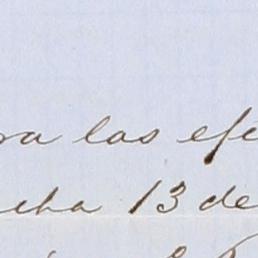 ra las efe
cha 13 de